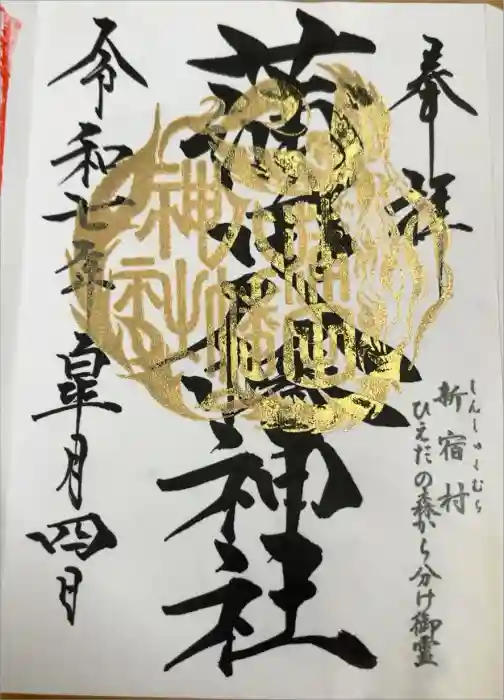 奉拝
しんしゅくむら
新宿村
ひえだの森から分け御霊
蒲田八幡神社
蒲田
八幡
神社
令和七年 皐月四日